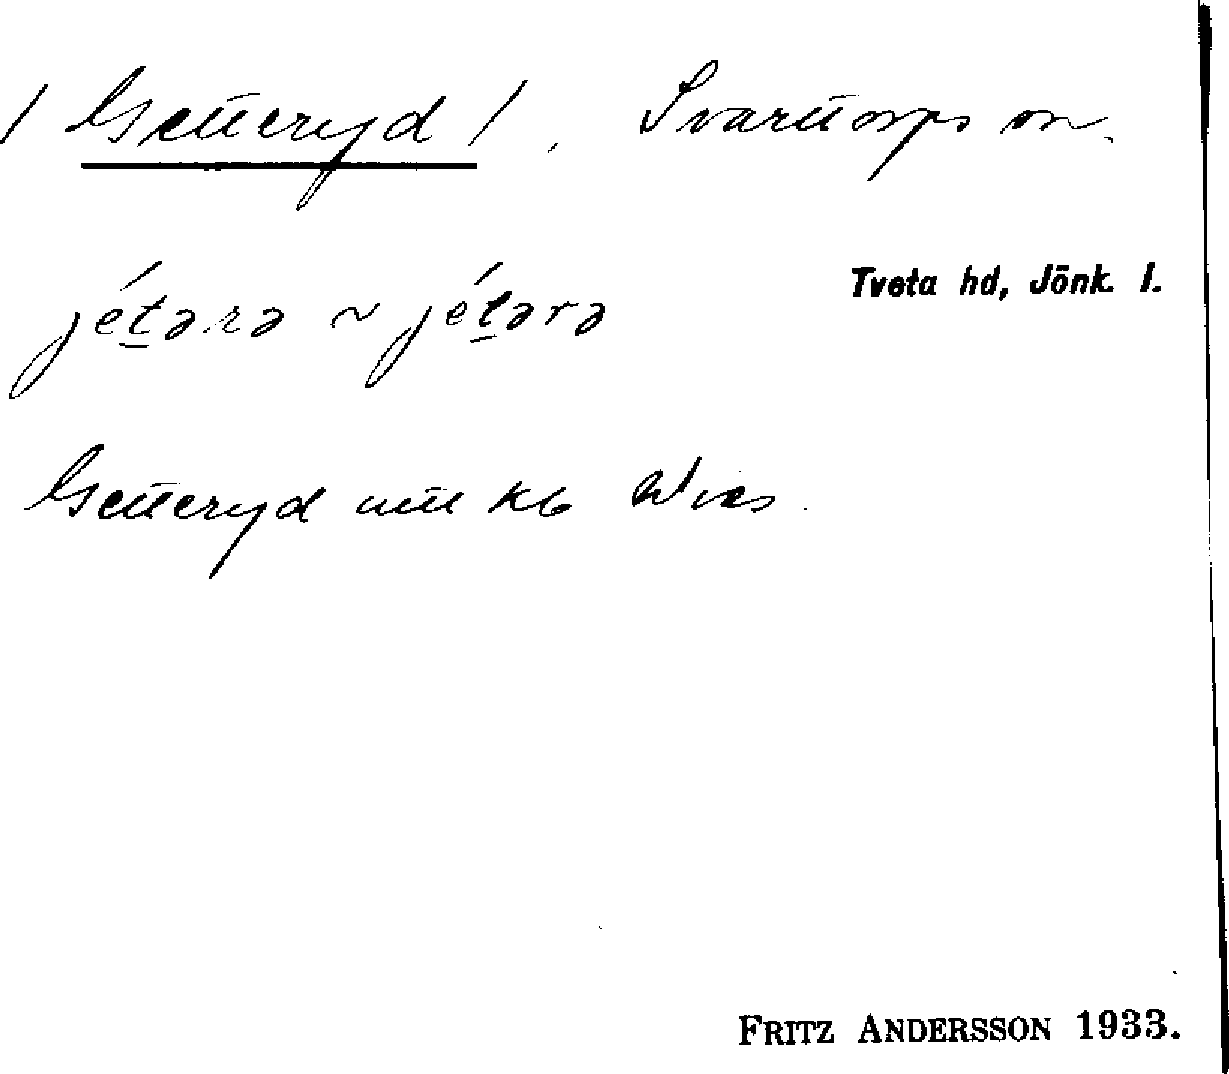 / Getteryd /. Svarttorps sn.
Tveta hd, Jönk. l.
jétərə ~ jétərə
Getteryd utt kb
FRITZ ANDERSSON 1933.